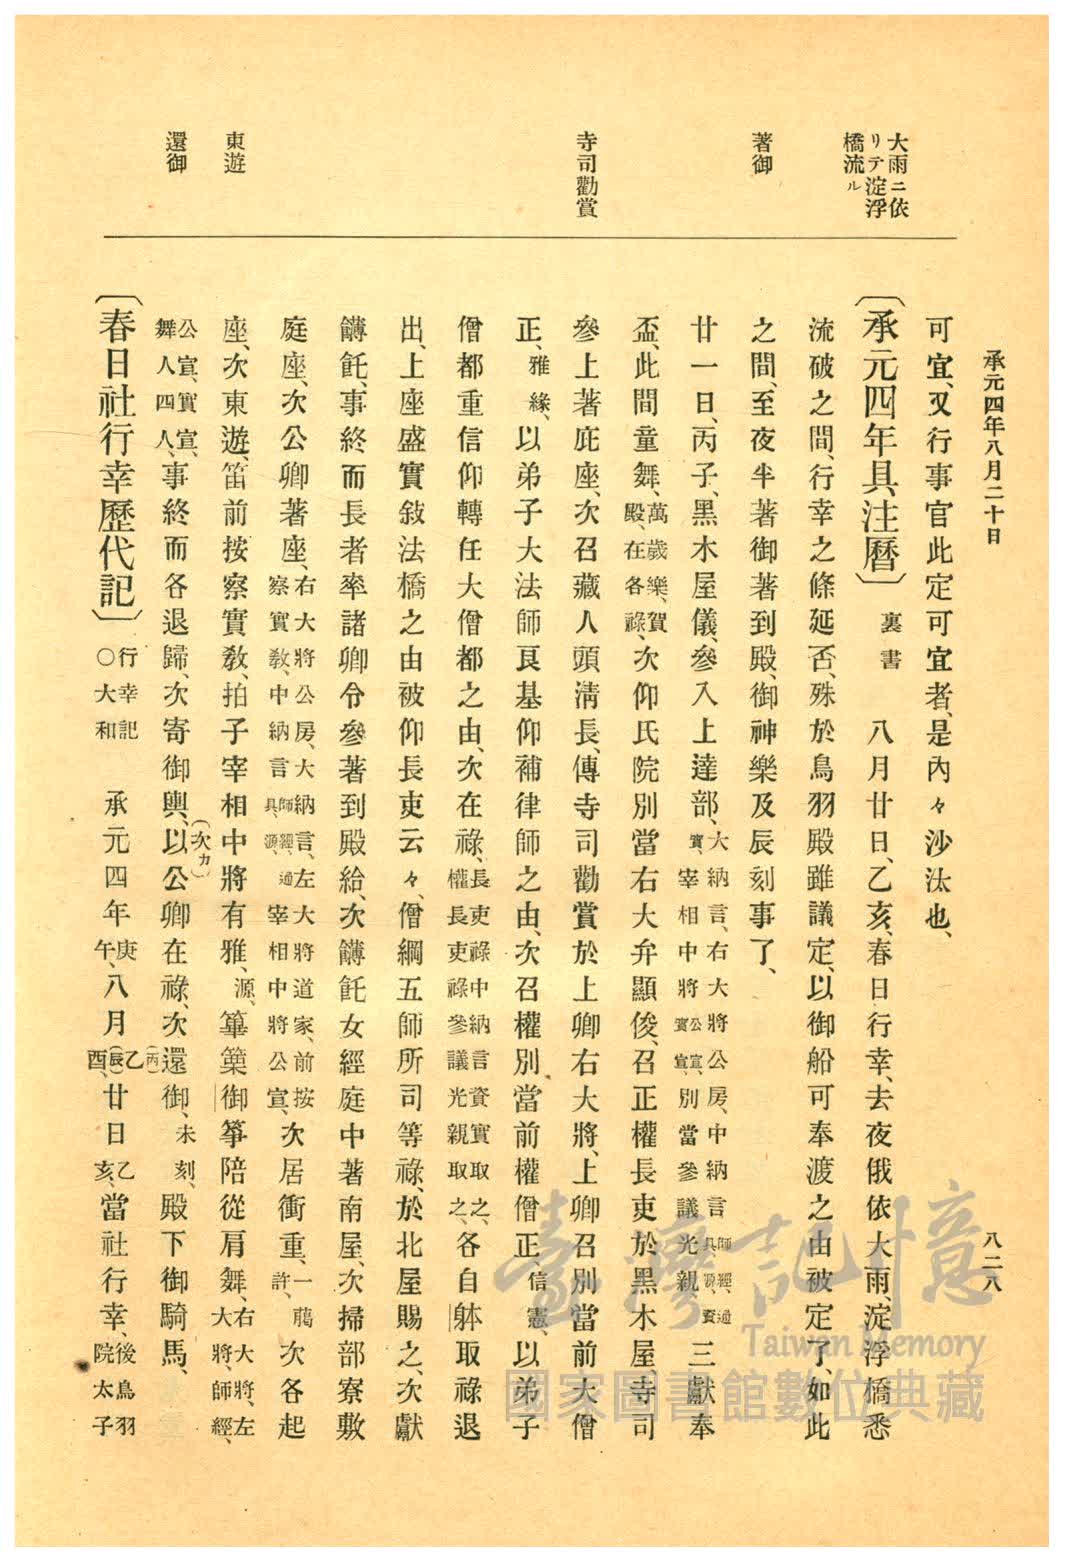 承元四年八月二十日
八二八
大雨ニ依
リテ淀浮
橋流ル
著御
寺司勸賞
東遊
還御
可宜、又行事官此定可宜者、是內々沙汰也、
〔承元四年具注曆〕裏書 八月廿日、乙亥、春日行幸、去夜俄依大雨、淀浮橋悉
流破之間、行幸之條延否、殊於鳥羽殿雖議定、以御船可奉渡之由被定了、如此
之間、至夜半著御著到殿、御神樂及辰刻事了、
廿一日、丙子、黑木屋儀、參入上達部、大納言、右大將公房、中納言師經、通具、資實、宰相中將公宣、實宣、別當參議光親、三獻奉
盃、此間童舞、萬歲樂、賀殿、在各祿、次仰氏院別當右大弁顯俊、召正權長吏於黑木屋、寺司
參上著庇座、次召藏人頭淸長、傳寺司勸賞於上卿右大將、上卿召別當前大僧
正、雅緣、以弟子大法師良基仰補律師之由、次召權別當前權僧正信憲、以弟子
僧都重信仰轉任大僧都之由、次在祿、長吏祿中納言資實取之、權長吏祿參議光親取之、各自躰取祿退
出、上座盛實敍法橋之由被仰長吏云々、僧綱五師所司等祿、於北屋賜之、次獻
餺飥、事終而長者率諸卿令參著到殿給、次餺飥女經庭中著南屋、次掃部寮敷
庭座、次公卿著座、右大將公房、大納言師經、通具、源、左大將道家、前按察實敎、中納言宰相中將公宣、次居衝重、一許、﨟次各起
座、次東遊、笛前按察實敎、拍子宰相中將有雅、源、篳篥御箏陪從肩舞、右大將、左大將、師經、
公宣、實宣、舞人四人、事終而各退歸、次寄御輿、以(次カ)公卿在祿、次還御、未刻、殿下御騎馬、
〔春日社行幸歷代記〕行幸記○大和 承元四年庚午、八月乙(丙)酉(辰)、廿日乙亥、當社行幸、後鳥羽院太子
臺灣記憶
Taiwan Memory
國家圖書館數位典藏